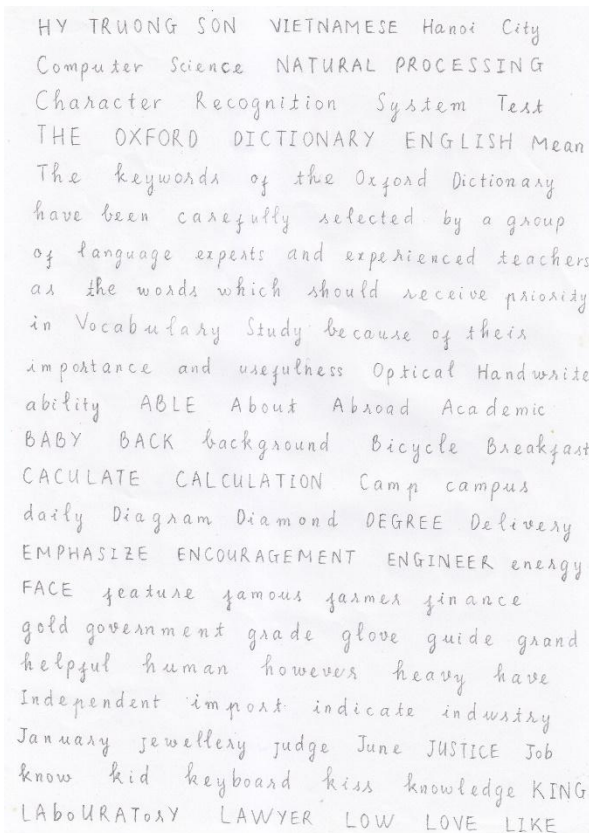 HY TRUONG SON VIETNAMESE Hanoi City
Computer Science NATURAL PROCESSING
Character Recognition System Test
THE OXFORD DICTIONARY ENGLISH Mean
The keywords of the Oxford Dictionary
have been carefully selected by a group
of language experts and experienced teachers
as the words which should receive priority
in Vocabulary Study because of their
importance and usefulness Optical Handwrite
ability ABLE About Abroad Academic
BABY BACK background Bicycle Breakfast
CACULATE CALCULATION Camp campus
daily Diagram Diamond DEGREE Delivery
EMPHASIZE ENCOURAGEMENT ENGINEER energy
FACE feature famous farmer finance
gold government grade glove guide grand
helpful human however heavy have
Independent import indicate industry
January jewellery judge June JUSTICE Job
know kid keyboard kiss knowledge KING
LAbOURATorY LAWYER LOW LOVE LIKE